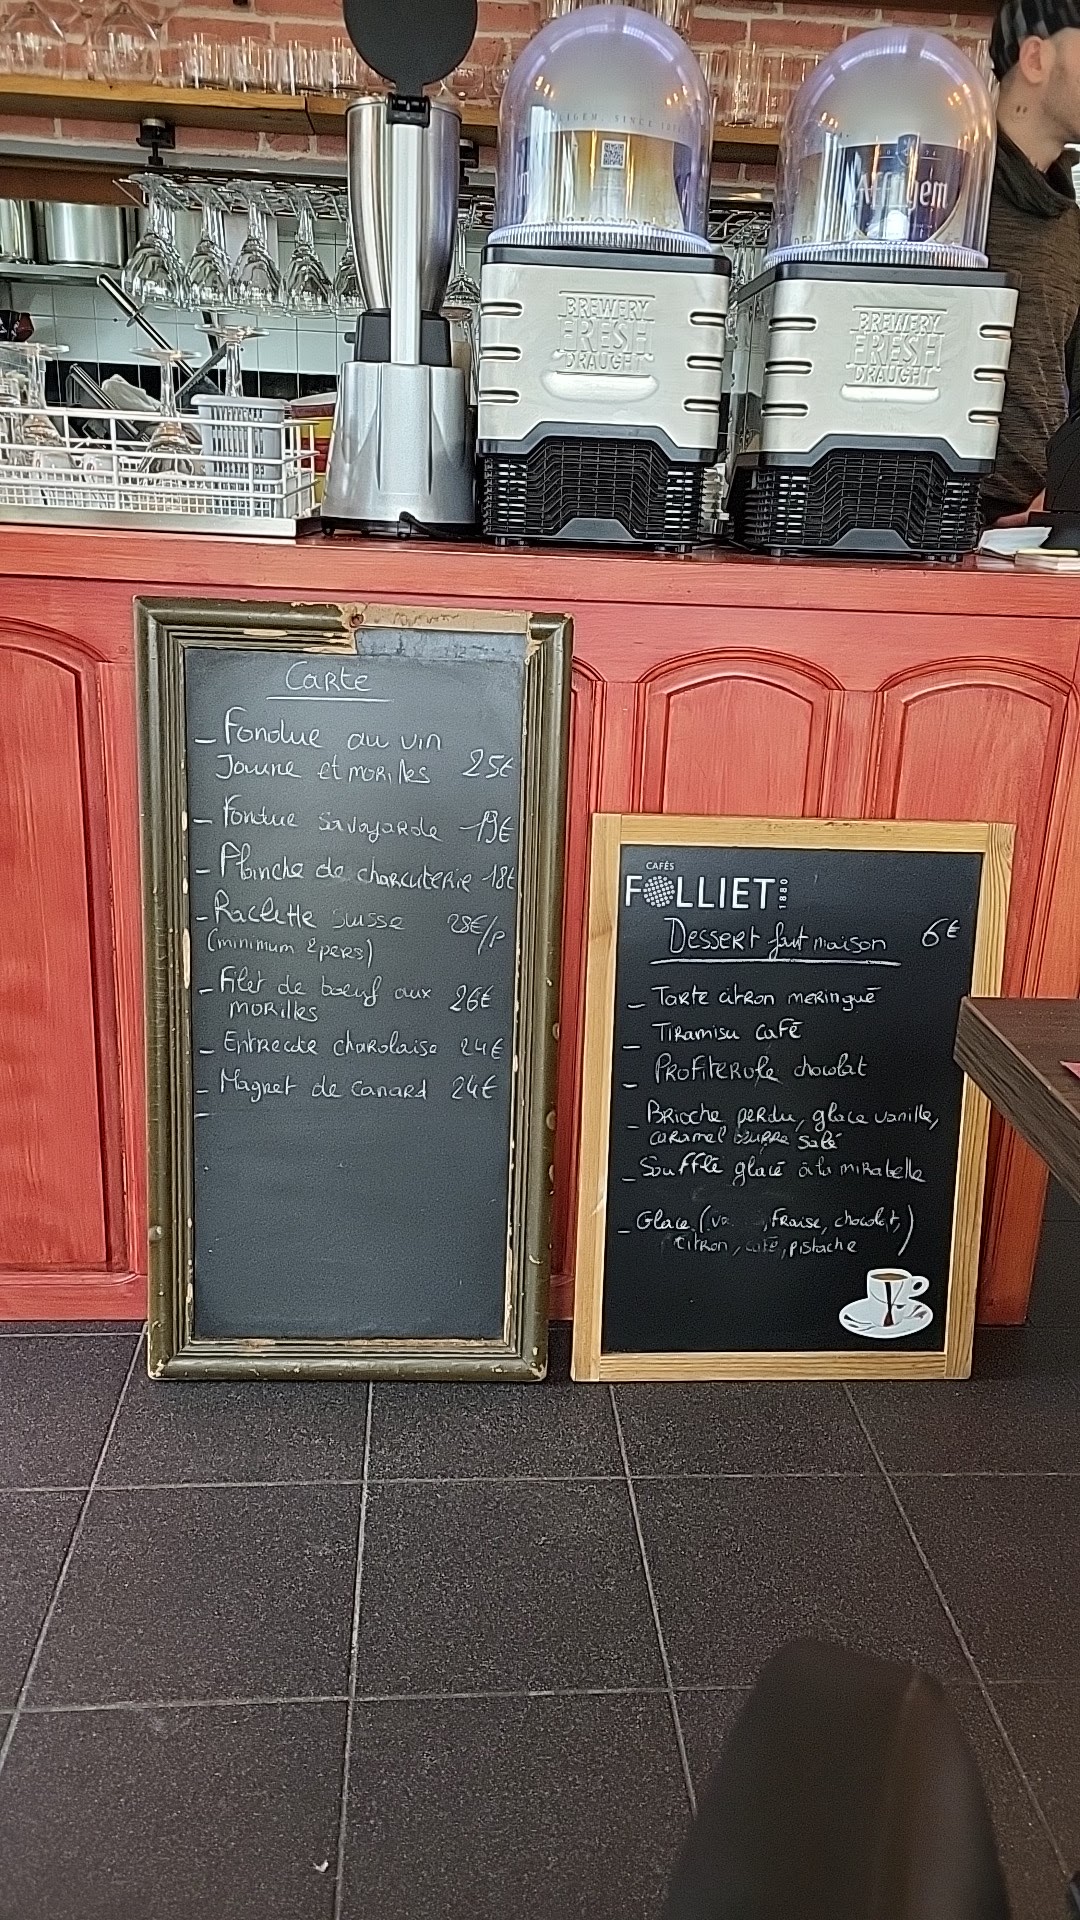 LIGEM, SINCE 1074
BLONDE
Affligem
BREWERY
FRESH
DRAUGHT
BREWERY
FRESH
DRAUGHT
Carte
- Fondue au vin
Jaune et morilles 25€
- Fondue savoyarde 19€
- Planche de charcuterie 18€
- Raclette Suisse 28€/p
(minimum 2 pers)
- Filet de boeuf aux
morilles 26€
- Entrecote charolaise 24€
- Magret de canard 24€
-
CAFÉS
FOLLIET 1880
Dessert fait maison 6€
- Tarte citron meringué
- Tiramisu café
- Profiterole chocolat
- Brioche perdu, glace vanille,
caramel beurre salé
- Soufflé glacé à la mirabelle
- Glace (va , Fraise, chocolat,)
citron, café, pistache